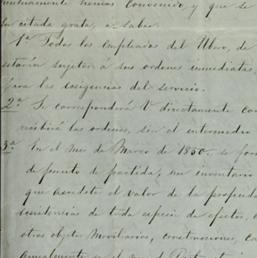 mutuamente hemos convenido, y que se
su citada grata, á saber.
1ª Todos los empleados del Ubero, de
estarán sujetos á sus ordenes inmediatas,
para las exigencias del servicio.
2ª Se corresponderá V directamente con
las ordenes, sin el intermedio
3ª En el mes de Marzo de 1850. se for
de punto de partida, un inventario
que acredite el valor de la propiedad
existencias de toda especie de efectos,
otros objetos moviliarios, construcciones, ca
anualmente en el mes de